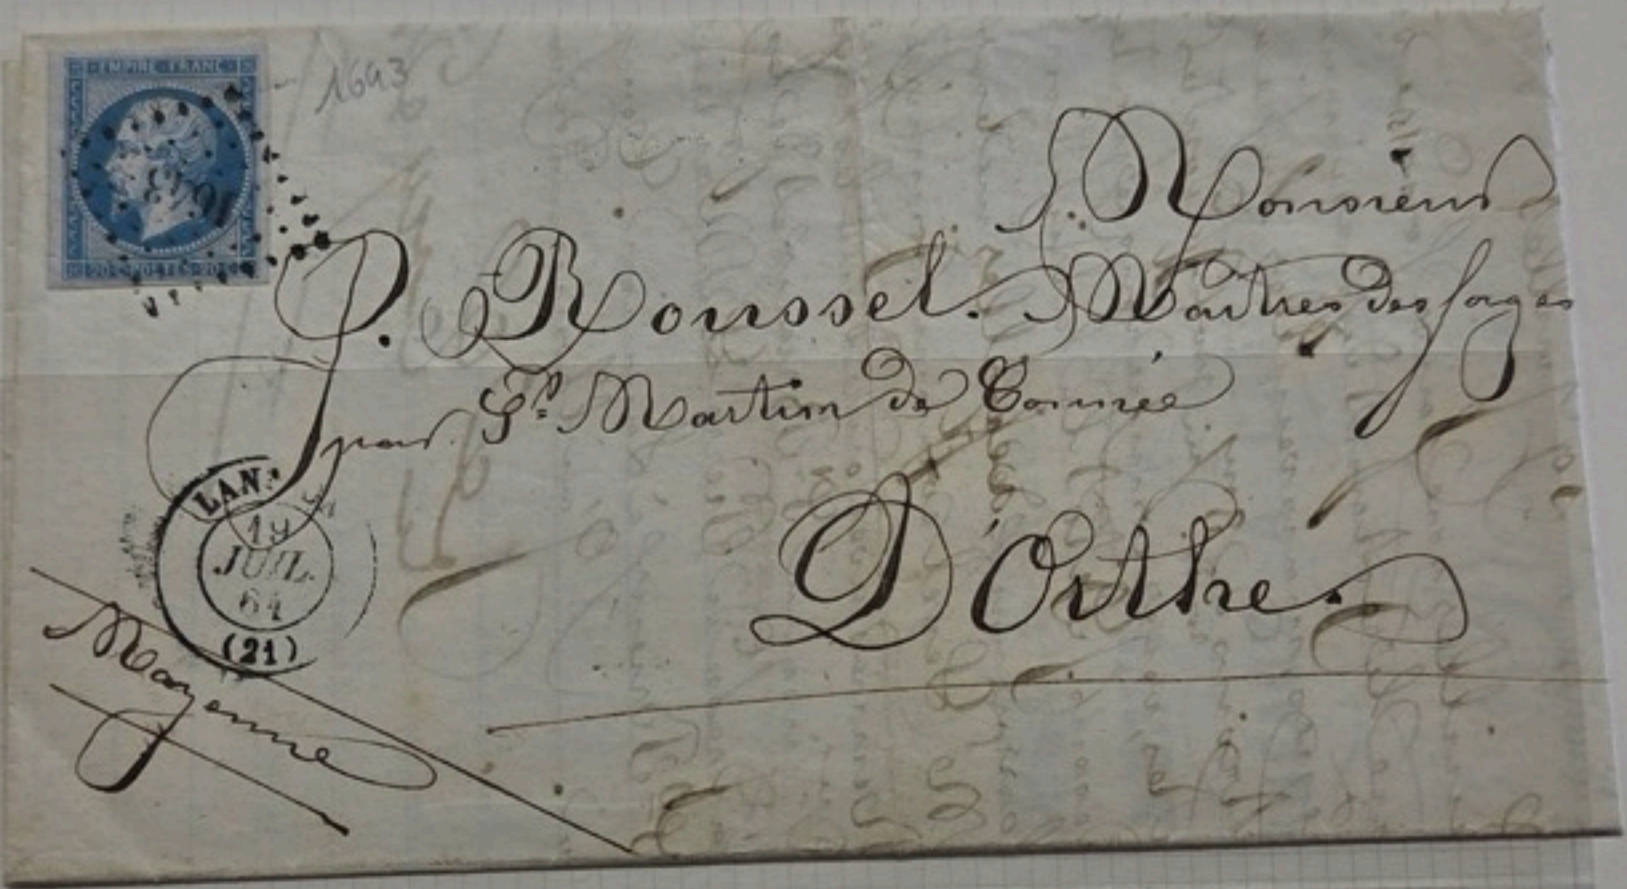 EMPIRE FRANC
1643
1643
20 C POSTES 20 C
Monsieur
P. Roussel. Maitres des forges
par St Martin de Connée
D'Orthe.
LAN
19
JUIL.
64
(21)
Mayenne